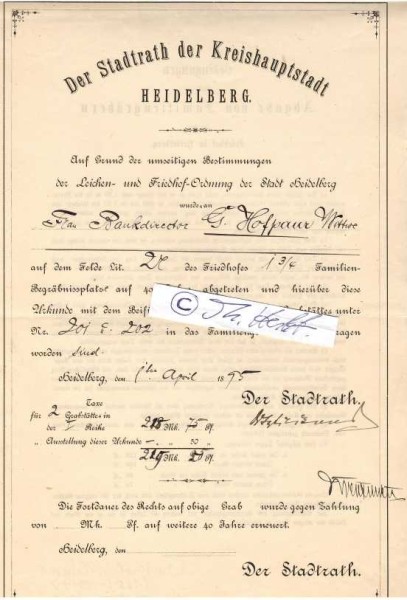 Der Stadtrath der Kreishauptstadt
HEIDELBERG.
Auf Grund der umseitigen Bestimmungen
der Leichen- und Friedhof-Ordnung der Stadt Heidelberg
wurde an
Frau Bankdirector G. Hofpaur Wittwe
auf dem Felde Lit. des Friedhofes 1 3/4 Familien-
Begräbnissplatz auf 40 abgetreten und hierüber diese
Urkunde mit dem unter
Nr. 201 & 202 in das Familien
worden sind.
Heidelberg, den 1ten April 1895
Der Stadtrath.
Taxe
für 2 Grabstätten in
der I Reihe 218 Mk. 75 Pf.
" Ausstellung dieser Urkunde - " 50 "
219 Mk. 25 Pf.
Die Fortdauer des Rechts auf obige Grab wurde gegen Zahlung
von Mk. Pf. auf weitere 40 Jahre erneuert.
Heidelberg, den
Der Stadtrath.